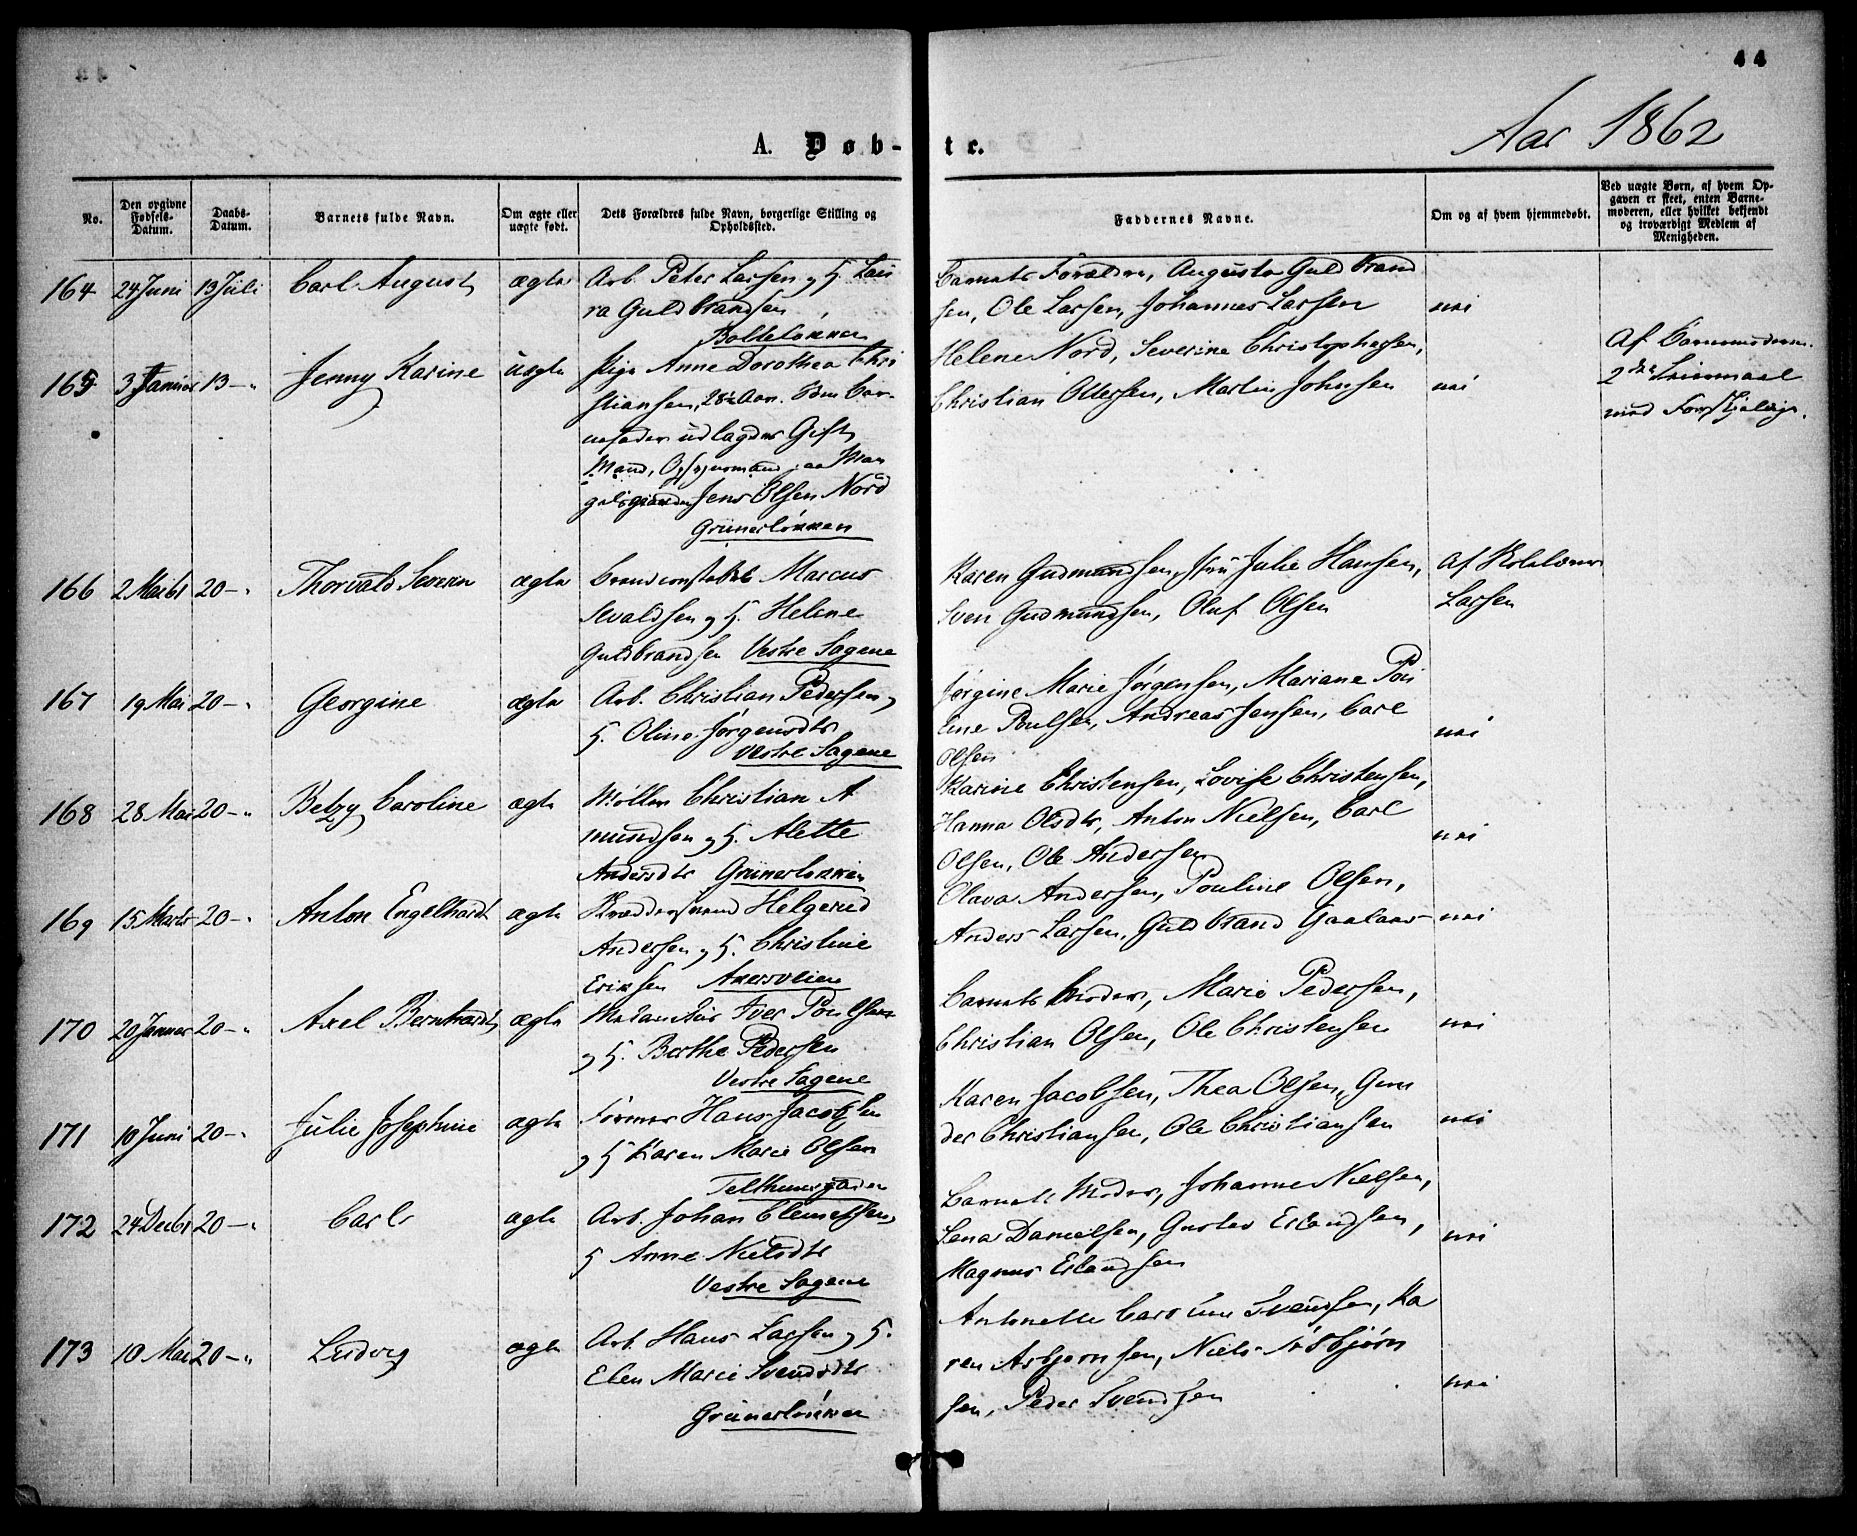 44
Aar 1862
A. Døb-te.
No.
Den opgivne Fødsels-Datum.
Daabs-Datum.
Barnets fulde Navn.
Om ægte eller uægte født.
Dets Forældres fulde Navn, borgerlige Stilling og Opholdssted.
Faddernes Navne.
Om og af hvem hjemmedøbt.
Ved uægte Børn, af hvem Opgaven er skeet, enten Barnemoderen, eller hvilket bekjendt og troværdigt Medlem af Menigheden.
164 24 Juni 13 Juli Carl August ægte Arb. Peter Larsen og H. Lau
ra Guldbrandsen
Bolteløkken
Barnets Forældre, Augusta Guldbrand
sen, Ole Larsen, Johannes Larsen nei
165 3 Januar 13 - " Jenny Karine uægte Pige Anne Dorothea Chri
stiansen, 28½ Aar. Som Bar-
nefader udlagdes Gift
Mand, Opsynsmand paa Man
gelsgaarden Jens Olsen Nord
Grünerløkken
Helene Nord, Severine Christophersen,
Christian Ottersen, Martin Johnsen nei
Af Barnemoderen.
2det Leiermaal
med Forskjelige.
166 2 Mai 61 20 - " Thorvald Severin ægte Brandconstabel Marcus
Sevaldsen og H. Helene
Guldbrandsen Vestre Sagene
Karen Gudmundsen, Fru Julie Hansen,
Sven Gudmundsen, Oluf Olsen
Af
Larsen
167 19 Mai 20 - " Georgine ægte Arb. Christian Pedersen og
H. Oline Jørgensdtr
Vestre Sagene
Jørgine Marie Jørgensen, Mariane Pou
line Poulsen, Andreas Jensen, Carl
Olsen nei
168 28 Mai 20 - " Betzy Caroline ægte Møller Christian A
mundsen og H. Alette
Andersdtr Grünerløkken
Karine Christensen, Lovise Christensen,
Hanna Olsdtr, Anton Nielsen, Carl
Olsen, Ole Andersen nei
169 15 Marts 20 - " Anton Engelhardt ægte Skræddersvend Helgerud
Andersen og H. Christine
Eriksen Akersveien
Olava Andersen, Pouline Olsen,
Anders Larsen, Guldbrand Gaalaas nei
170 20 Januar 20 - " Axel Bernhardt ægte Iver Poulsen
og H. Berthe Pedersen
Vestre Sagene
Barnets Moder, Marie Pedersen,
Christian Olsen, Ole Christensen nei
171 10 Juni 20 - " Julie Josephine ægte Former Hans Jacobsen
og H Karen Marie Olsen
Telthusgaden
Karen Jacobsen, Thea Olsen, Gun
der Christiansen, Ole Christiansen nei
172 24 Decbr 20 - " Carl ægte Arb. Johan Clemetsen og
H Anne Nielsdtr
Vestre Sagene
Barnets Moder, Johanne Nielsen,
Lena Danielsen, Gustav Erlandsen,
Magnus Erlandsen nei
173 10 Mai 20 - " Ludvig ægte Arb. Hans Larsen og H.
Elen Marie Svendsdtr
Grünerløkken
Antonette Caroline Svendsen, Ka
ren Asbjørnsen, Niels Asbjørn
sen, Peder Svendsen nei